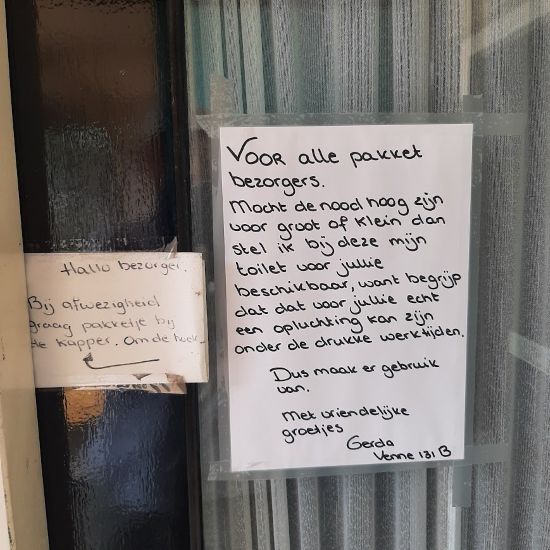 Hallo bezorger.
Bij afwezigheid
graag pakketje bij
de kapper. Om de hoek
Voor alle pakket
bezorgers.
Mocht de nood hoog zijn
voor groot of klein dan
stel ik bij deze mijn
toilet voor jullie
beschikbaar, want begrijp
dat dat voor jullie echt
een opluchting kan zijn
onder de drukke werktijden.
Dus maak er gebruik
van.
Met vriendelijke
groetjes
Gerda
Venne 131 B